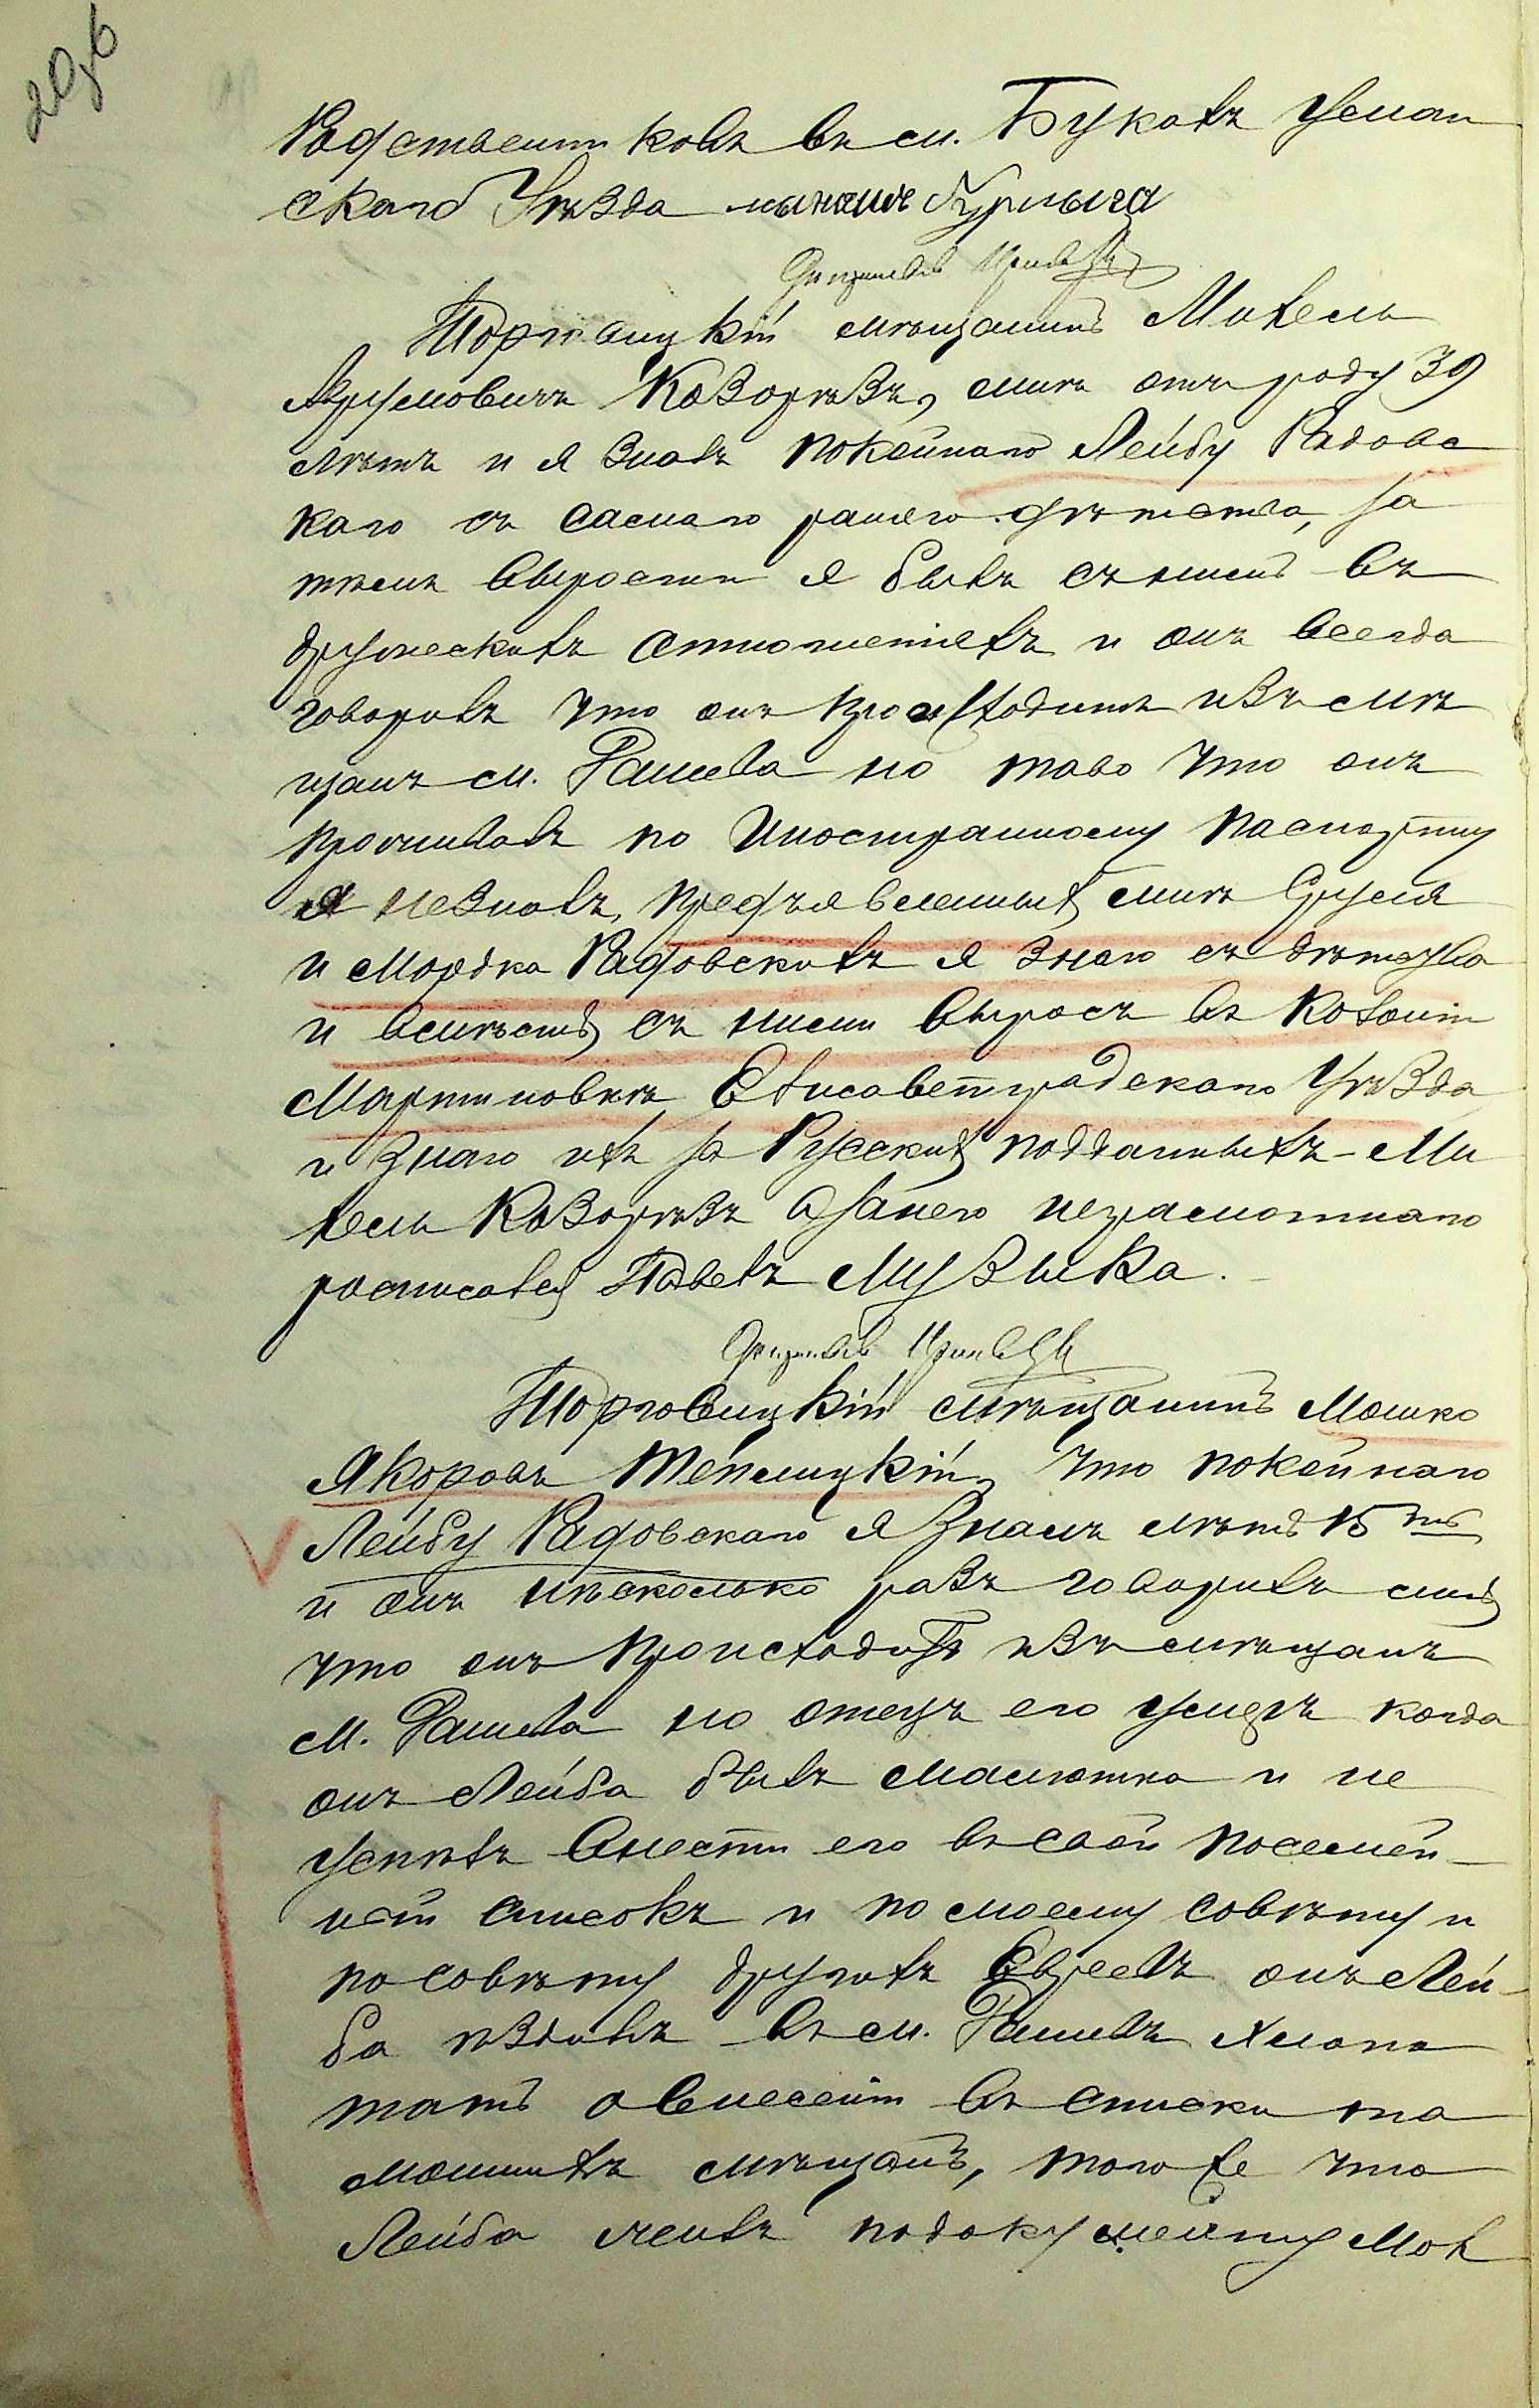 20об
Родственниковъ въ м. Букахъ Уман
скаго Уѣзда
Торговицкій мѣщанинъ Михель
Козоргъзъ, мнѣ отъ роду 39
лѣтъ и я зналъ покойнаго Лейбу Радовс
каго съ самаго раняго дѣтства, за
тѣмъ выросши я былъ съ нимъ въ
дружескихъ отношеніяхъ и онъ всегда
говорилъ что онъ происходитъ изъ мѣ
щанъ м. Рашева но таво что онъ
проживалъ по Иностранному паспорту
я незналъ, предъявленныхъ мнѣ Сруля
и Мордка Радовскихъ я знаю съ дѣтства
и вмѣстѣ съ ними выросъ въ Колоніи
Мартиновкѣ Елисаветградскаго Уѣзда
и знаю ихъ за Русскихъ подданныхъ - Ми
хель Козоргъзъ а за него неграмотнаго
росписался Павелъ Музыка.
Торговицкій мѣщанинъ Мошко
Якоровъ Теплицкій, что покойнаго
Лейбу Радовскаго я Знаю лѣтъ 15 ть
и онъ нѣсколько разъ говорилъ мнѣ
что онъ происходитъ изъ мѣщанъ
м. Рашева но отецъ его умеръ когда
онъ Лейба былъ малютка и не
успѣлъ внести его въ свой посемей-
ной списокъ и по моему совѣту и
по совѣту другихъ Евреевъ онъ Лей-
ба ѣздилъ въ м. Рашевъ хлопо
тать о внесеніи въ списки та
мошнихъ мѣщанъ, того же что
Лейба жилъ подокументу Мол